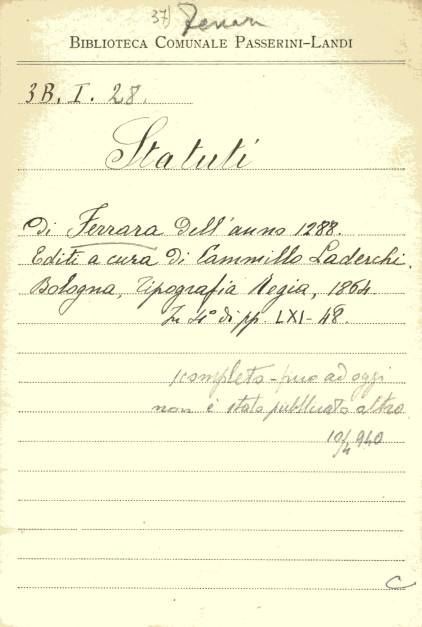 37) Ferrar
BIBLIOTECA COMUNALE PASSERINI-LANDI
3B. I. 28.
Statuti
di Ferrara dell'anno 1288.
Editi a cura di Cammillo Laderchi.
Bologna, Tipografia Regia, 1864
In 4° di pp. LXI-48.
completo - fino ad oggi
non è stato pubblicato altro
10/4 940
C